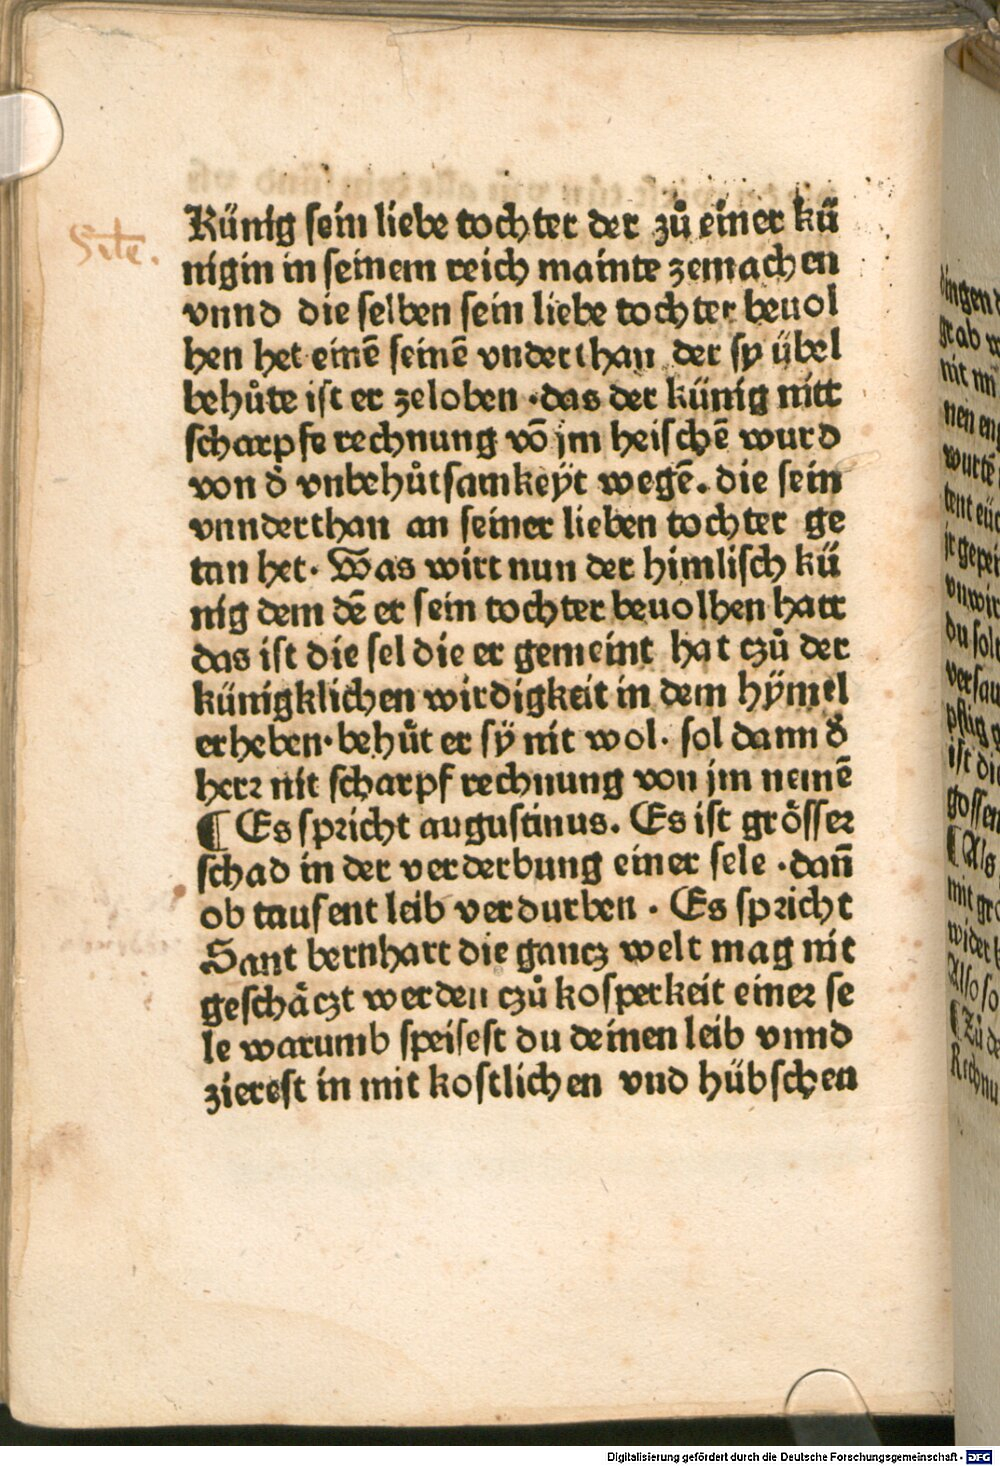 Künig sein liebe tochter der zů einer kü
nigin in seinem reich mainte zemachen
vnnd die selben sein liebe tochter beuol
hen het einē seinē vnderthan der sy übel
behůte ist er zeloben ·das der künig nitt
scharpfe rechnung vō jm heischē wurd
von d̕ vnbehůtsamkeÿt wegē. die sein
vnnderthan an seiner lieben tochter ge
tan het· Was wirt nun der himlisch kü
nig dem dē er sein tochter beuolhen hatt
das ist die sel die er gemeint hat czů der
künigklichen wirdigkeit in dem hÿmel
erheben·behůt er sÿ nit wol· sol dann d̕
herr nit scharpf rechnung von jm nemē
¶ Es spricht augustinus. Es ist grösser
schad in der verderbung einer sele ·dañ
ob tausent leib verdurben · Es spricht
Sant bernhart die gancz welt mag nit
geschäczt werden czů kosperkeit einer se
le warumb speisest du deinen leib vnnd
zierest in mit kostlichen vnd hübschen
Digitalisierung gefördert durch die Deutsche Forschungsgemeinschaft - DFG